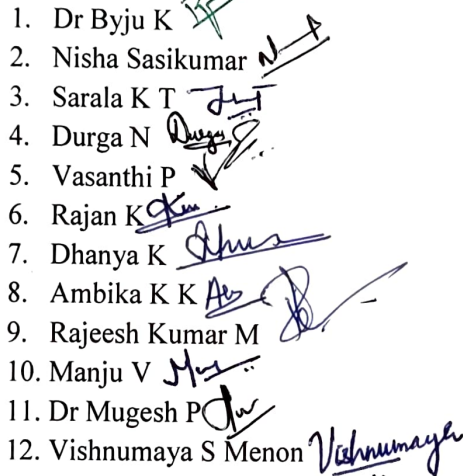 1. Dr Byju K
2. Nisha Sasikumar
3. Sarala K T
4. Durga N Durga
5. Vasanthi P
6. Rajan K
7. Dhanya K
8. Ambika K K
9. Rajeesh Kumar M
10. Manju V
11. Dr Mugesh P
12. Vishnumaya S Menon Vishnumaya